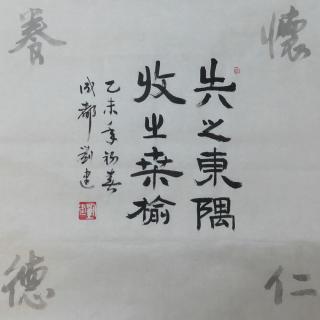 失之東隅
收之桑榆
乙未年初春
成都劉建
懷仁
養德